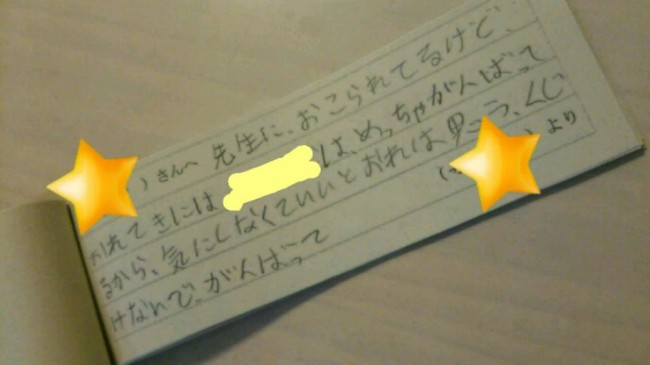 )さんへ 先生に、おこられてるけど、
おれてきには は、めっちゃがんばって
るから、気にしなくていいとおれは思う、くじ
けないで、がんばって
より